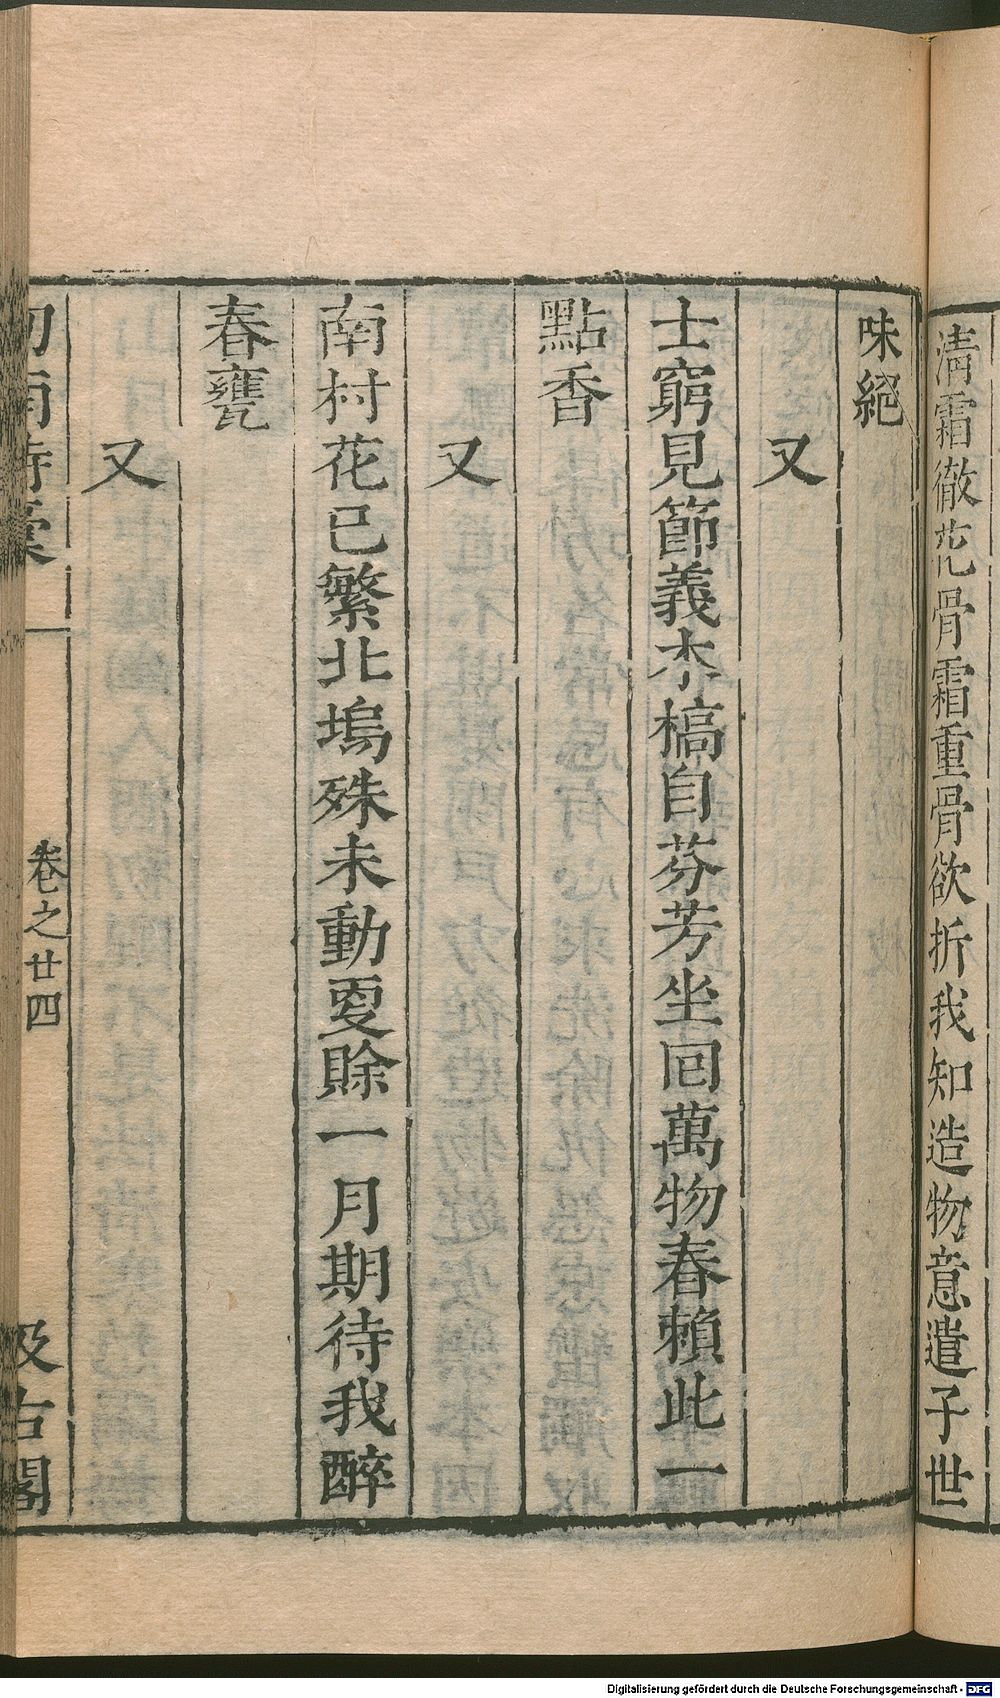 清霜徹花骨霜重骨欲折我知造物意遣子世
味絕
又
士窮見節義木槁自芬芳坐回萬物春賴此一
點香
又
南村花已繁北塢殊未動更賖一月期待我醉
春甕
又
劍南詩稾
卷之廿四
汲古閣
Digitalisierung gefördert durch die Deutsche Forschungsgemeinschaft - DFG